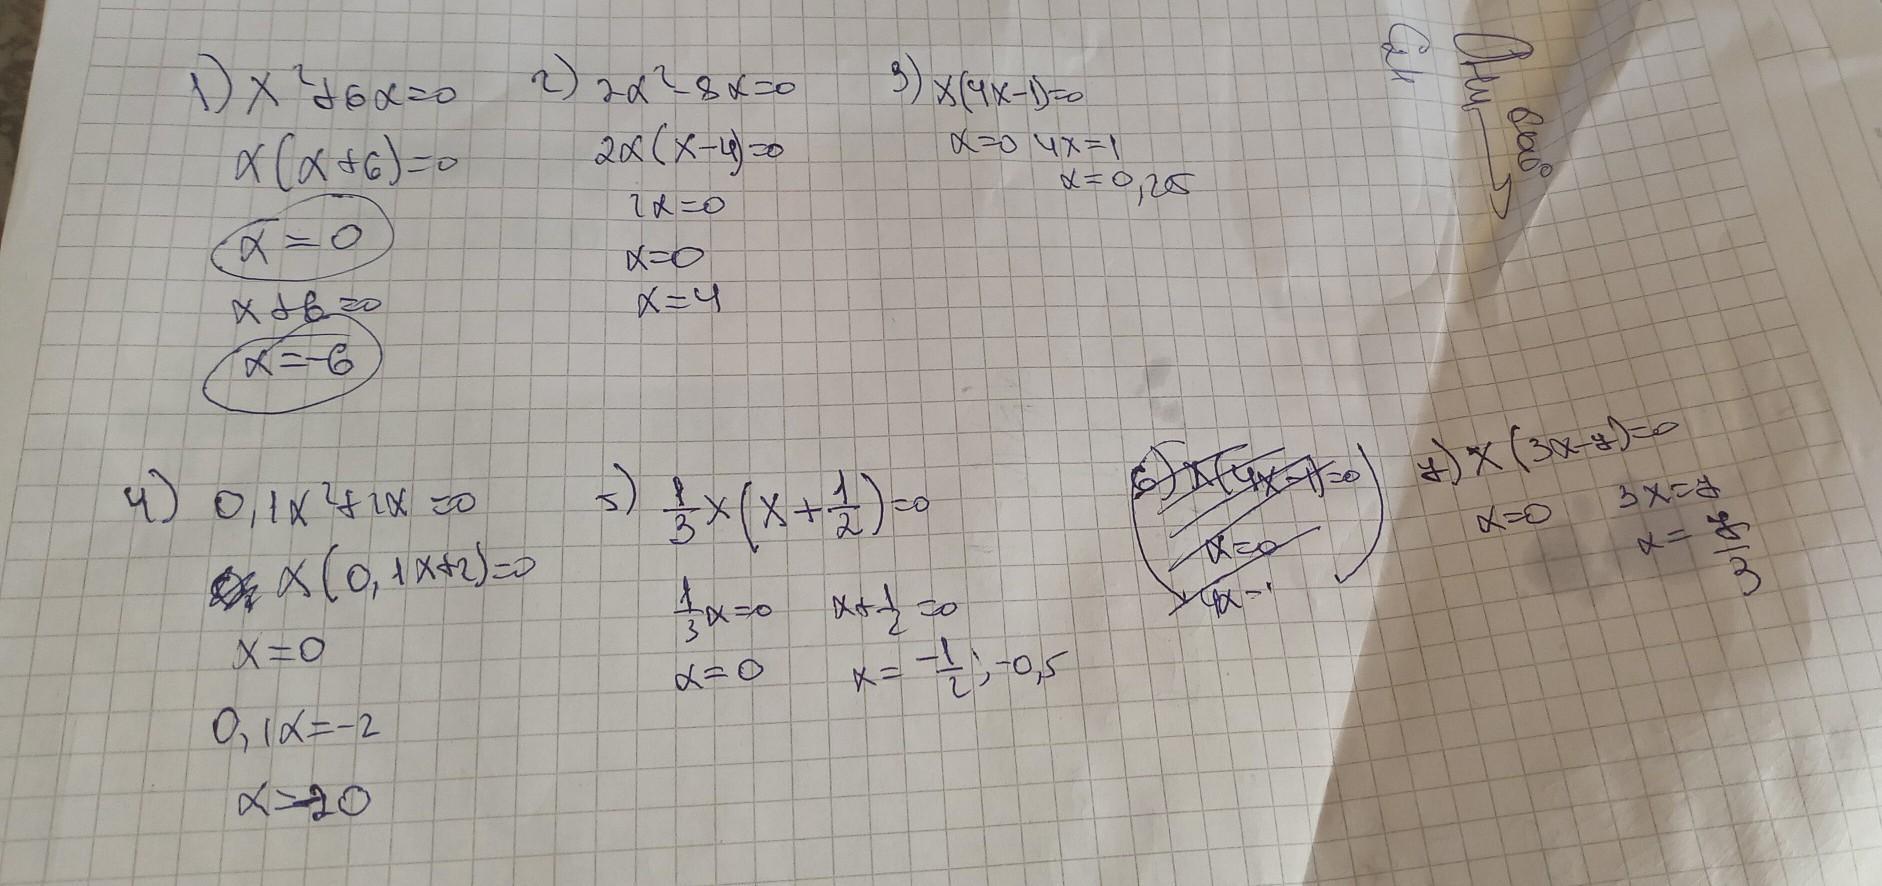 1) x²+6x=0
x(x+6)=0
x=0
x+6=0
x=-6
2) 2x²-8x=0
2x(x-4)=0
2x=0
x=0
x=4
3) x(4x-1)=0
x=0 4x=1
x=0,25
4) 0,1x²+2x=0
x(0,1x+2)=0
x=0
0,1x=-2
x=-20
5) 1/3x(x+1/2)=0
1/3x=0 x+1/2=0
x=0 x=-1/2; -0,5
6) x(4x-1)=0
x=0
4x=
7) x(3x-7)=0
x=0 3x=7
x=7/3